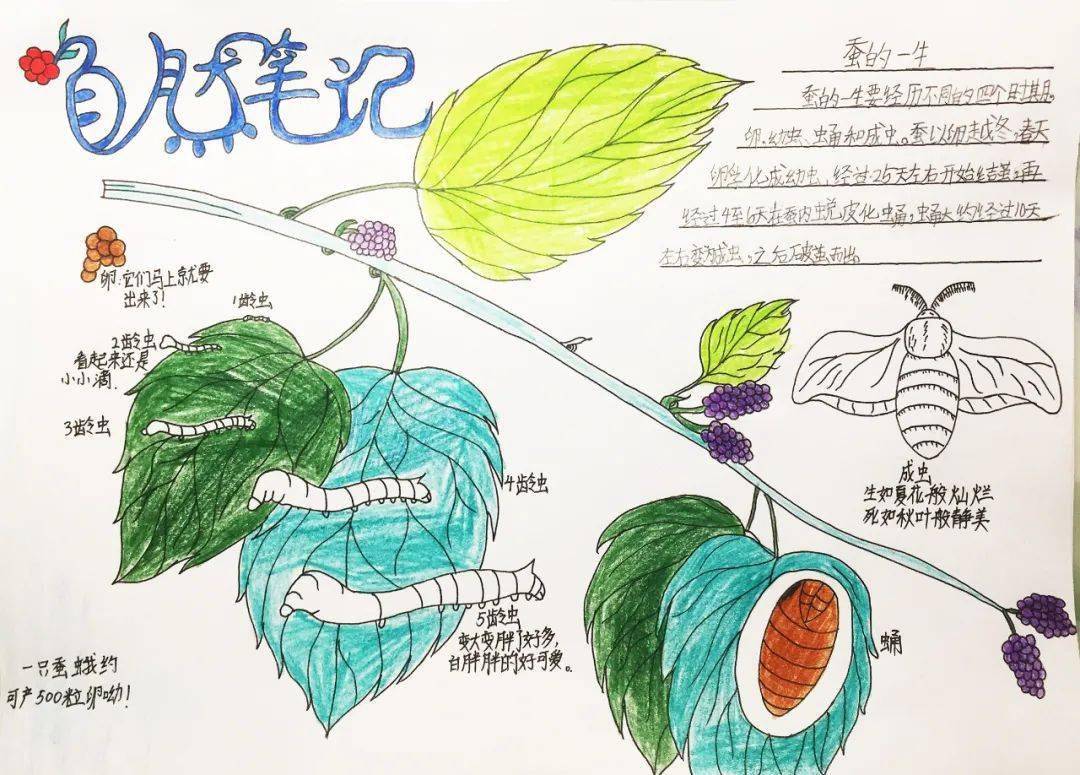 自然笔记
蚕的一生
蚕的一生要经历不同的四个时期。
卵、幼虫、蛹和成虫。蚕以卵越冬，春天
卵孵化成幼虫，经过25天左右开始结茧，再
经过4至6天在蚕内蜕皮化蛹，蛹大约经过10天
左右变为成虫，之后破茧而出
卵：它们马上就要
出来了！
1龄虫
2龄虫
看起来还是
小小滴.
3龄虫
4龄虫
5龄虫
变大变胖了好多，
白胖胖的好可爱。
成虫
生如夏花般灿烂
死如秋叶般静美
蛹
一只蚕蛾约
可产500粒卵呦！